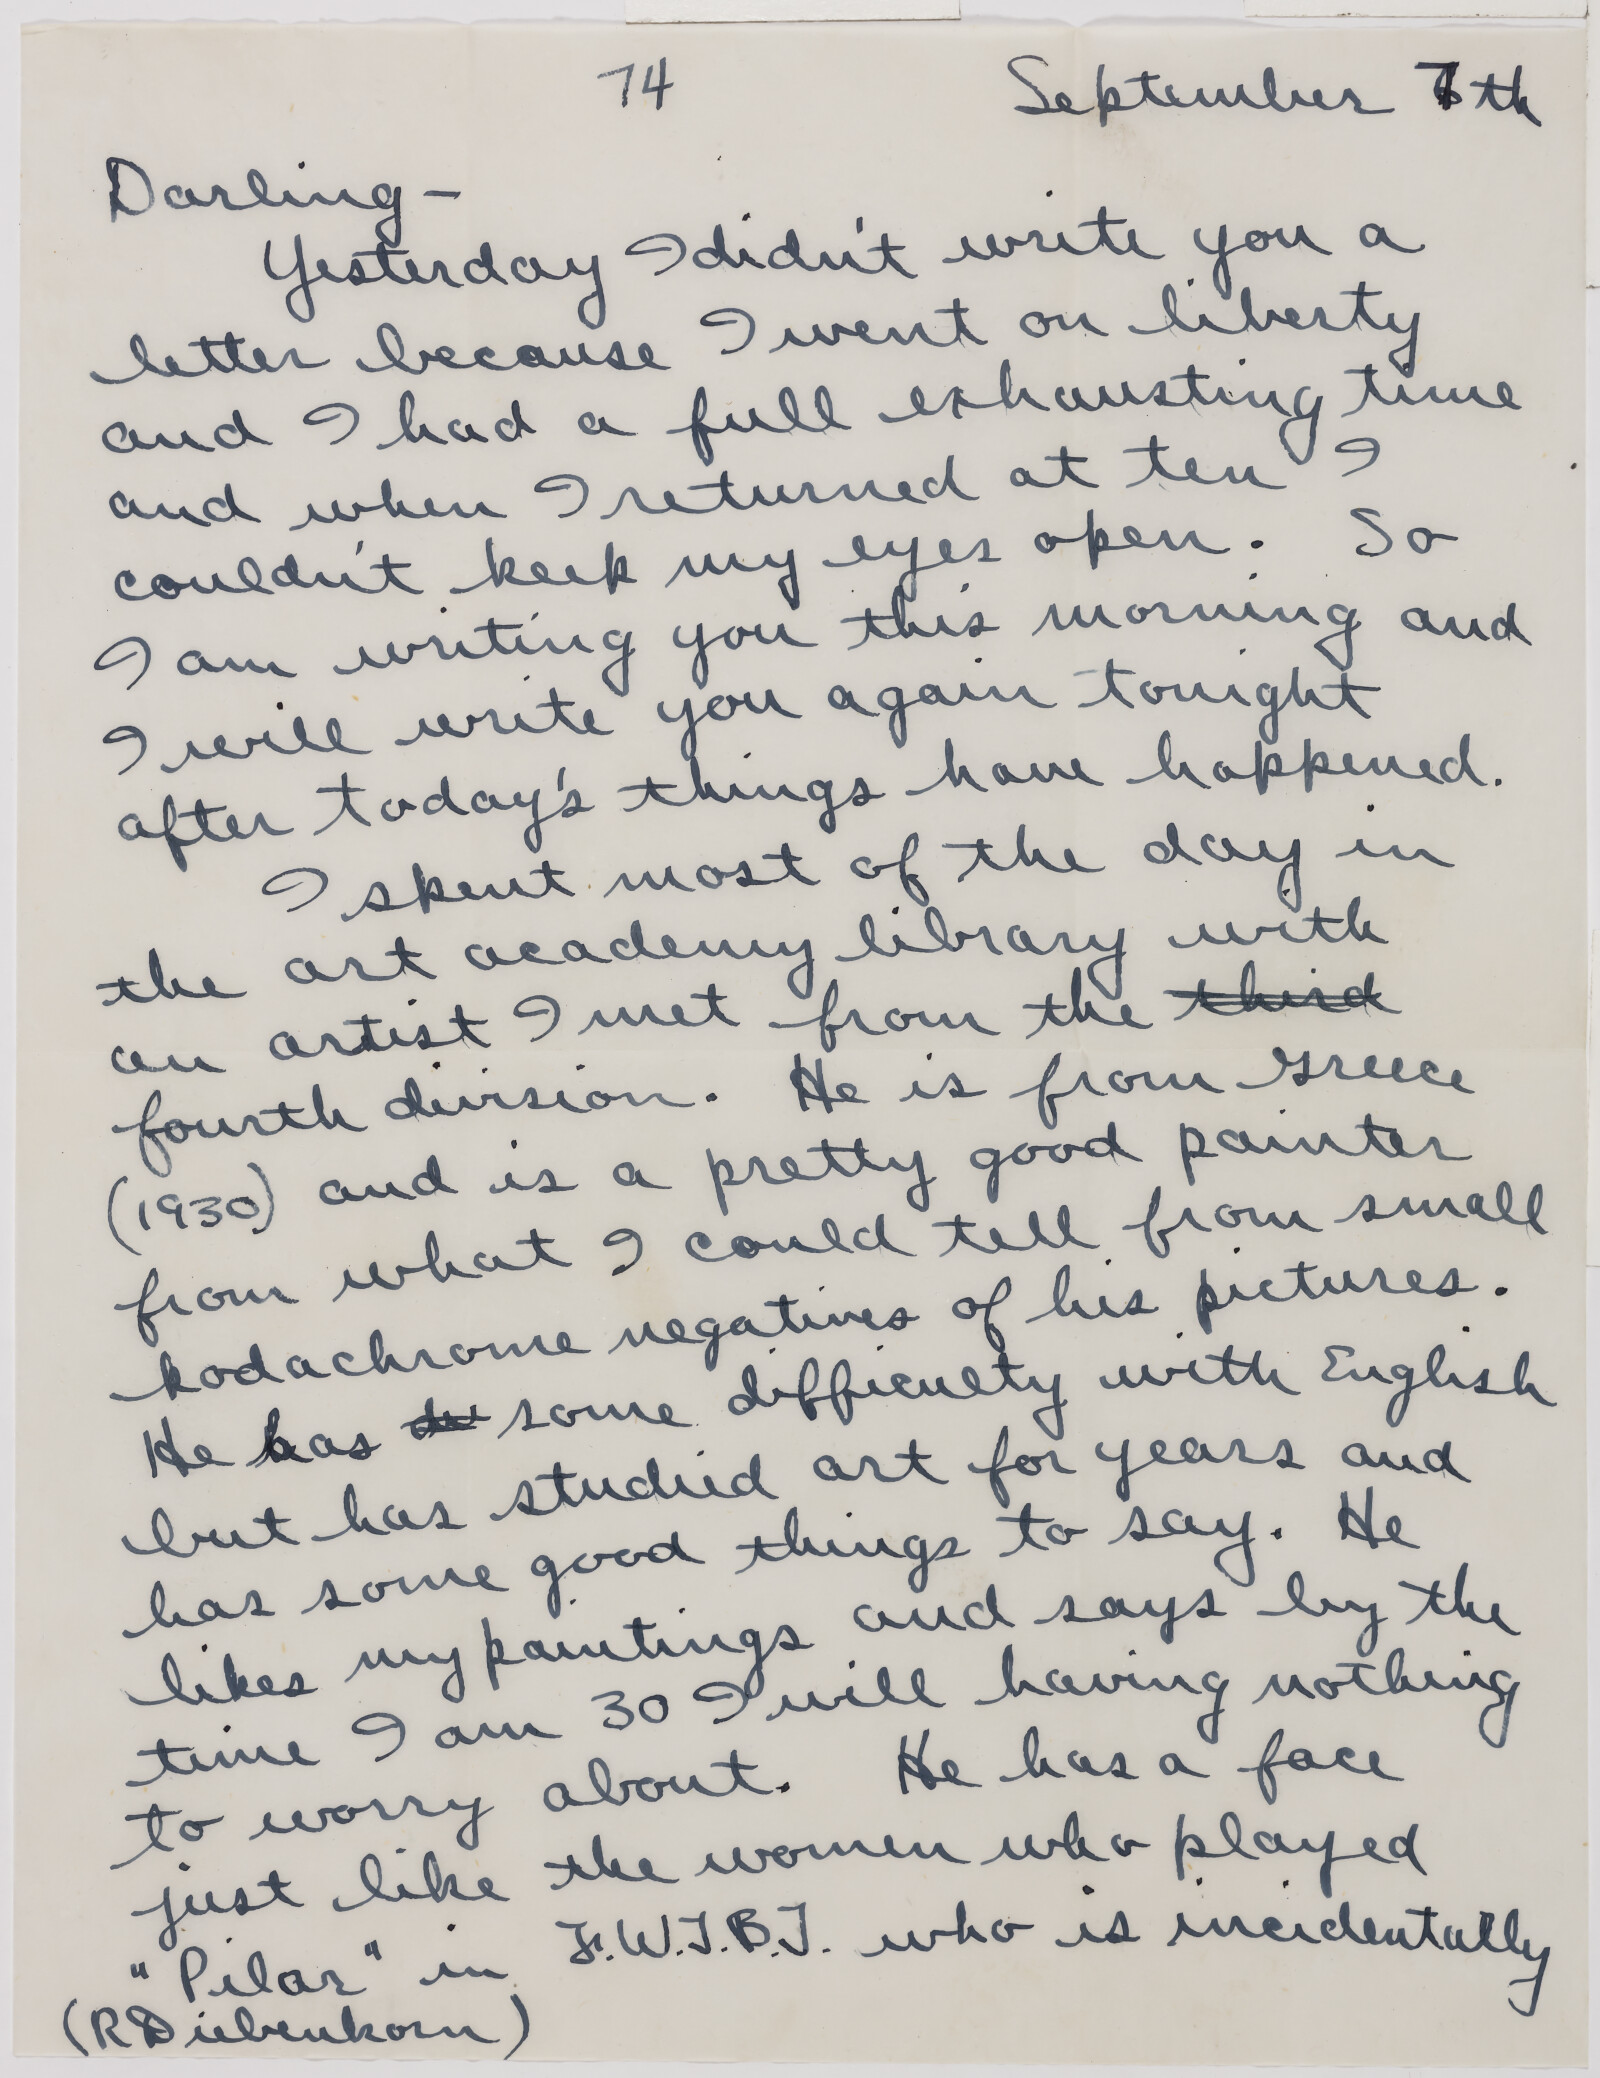 74 September 7th
Darling-
Yesterday I didn't write you a
letter because I went on liberty
and I had a full exhausting time
and when I returned at ten I
couldn't keep my eyes open. So
I am writing you this morning and
I will write you again tonight
after today's things have happened.
I spent most of the day in
the art academy library with
an artist I met from the third
fourth division. He is from Greece
(1930) and is a pretty good painter
from what I could tell from small
kodachrome negatives of his pictures.
He has some difficulty with English
but has studied art for years and
has some good things to say. He
likes my paintings and says by the
time I am 30 I will having nothing
to worry about. He has a face
just like the women who played
"Pilar" in F.W.T.B.T. who is incidentally
(R Diebenkorn)